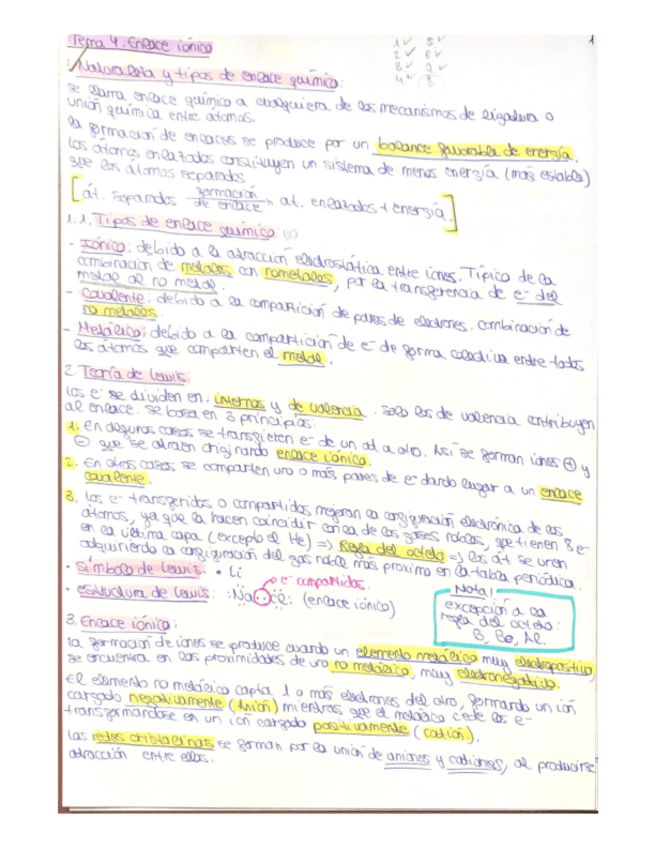 Tema 4. Enlace iónico
1
1✓ 5✓
2✓ 6✓
3✓ 7✓
4✓ 8
1. Naturaleza y tipos de enlace químico:
se llama enlace químico a cualquiera de los mecanismos de ligadura o
unión química entre átomos.
la formación de enlaces se produce por un balance favorable de energía.
Los átomos enlazados constituyen un sistema de menos energía (más estable)
que los átomos separados
[át. separados formación de enlace → at. enlazados + energía.]
1.1. Tipos de enlace químico: (3)
- Iónico: debido a la atracción electrostática entre iones. Típico de la
combinación de metales con no metales, por la transferencia de e- del
metal al no metal.
- Covalente: debido a la compartición de pares de electrones. combinación de
no metales.
- Metálico: debido a la compartición de e- de forma colectiva entre todos
los átomos que comparten el metal.
2. Teoría de Lewis:
Los e- se dividen en: internos y de valencia. Solo los de valencia contribuyen
al enlace. Se basa en 3 principios:
1. En algunos casos se transfieren e- de un at a otro. Así se forman iones ⊕ y
⊖ que se atraen originando enlace iónico.
2. En otros casos se comparten uno o más pares de e- dando lugar a un enlace
covalente.
3. Los e- transferidos o compartidos mejoran la configuración electrónica de los
átomos, ya que la hacen coincidir con la de los gases nobles, que tienen 8 e-
en la última capa (excepto el He) => Regla del octeto => los át se unen
adquiriendo la configuración del gas noble más proximo en la tabla periódica.
• Símbolo de Lewis: • Li
e- compartidos
• Estructura de Lewis: :Na··Cl: (enlace iónico)
Nota!
excepción a la
regla del octeto:
B, Be, Al.
3. Enlace iónico:
la formación de iones se produce cuando un elemento metálico muy electropositivo,
se encuentra en las proximidades de uno no metálico, muy electronegativo.
El elemento no metálico capta 1 o más electrones del otro, formando un ión
cargado negativamente (Anión) mientras que el metálico cede los e-
transformandose en un ion cargado positivamente (catión).
Las redes cristalinas se forman por la unión de aniones y cationes, al producirse
atracción entre ellos.